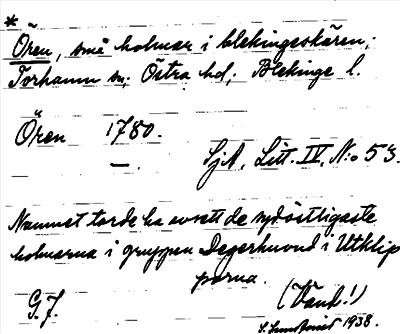 *
Ören, små holmar i blekingeskären;
Torhamn sn; Östra hd; Blekinge l.
Ören 1780.
— . SjA, Litt. IV, N:o 53.
Namnet torde ha avsett de sydöstligaste
holmarna i gruppen Degerhuvud i Utklip
porna.
G. J. (Vänd!)
1938.